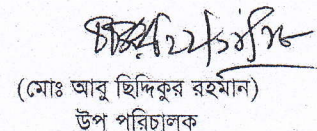 (মোঃ আবু ছিদ্দিকুর রহমান)
উপ পরিচালক